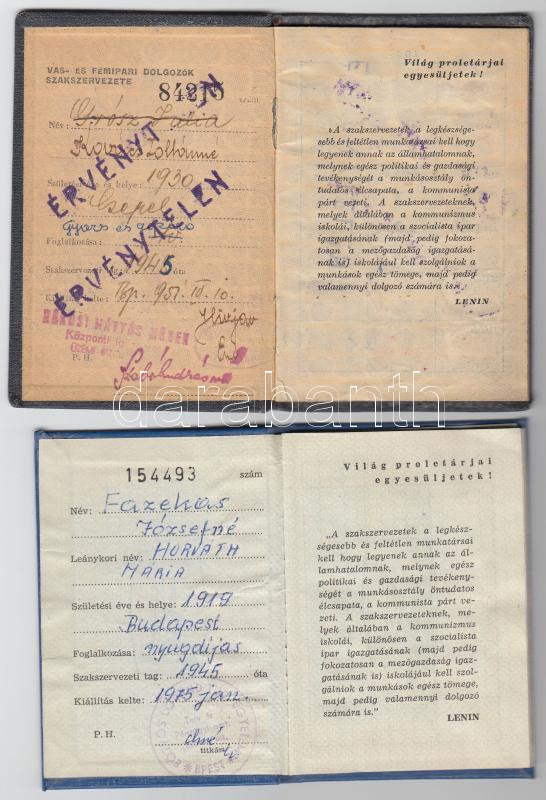 VAS- ÉS FÉMIPARI DOLGOZÓK
SZAKSZERVEZETE
84210 szám
Név: Grósz Júlia
Zoltánné
Születési éve és helye: 1930
Csepel
Gyors és
Foglalkozása:
Szakszervezeti tag: 1945 óta
Kiállítás kelte: Bp. 1951. III. 10.
ÉRVÉNYTELEN
ÉRVÉNYTELEN
RÁKOSI MÁTYÁS MŰVEK
Központi
P. H.
Világ proletárjai
egyesüljetek!
»A szakszervezetek a legkészsége-
sebb és feltétlen munkatársai kell hogy
legyenek annak az államhatalomnak,
melynek egész politikai és gazdasági
tevékenységét a munkásosztály ön-
tudatos élcsapata, a kommunista
párt vezeti. A szakszervezeteknek,
melyek általában a kommunizmus
iskolái, különösen a szocialista ipar
igazgatásának (majd pedig fokozato-
san a mezőgazdaság igazgatásá-
nak is) iskolájául kell szolgálniok a
munkások egész tömege, majd pedig
valamennyi dolgozó számára is.«
LENIN
darabanth
154493 szám
Név: Fazekas
Józsefné
Leánykori név: HORVÁTH
MÁRIA
Születési éve és helye: 1919
Budapest
Foglalkozása: nyugdijas
Szakszervezeti tag: 1945 óta
Kiállítás kelte: 1975 jan.
P. H.
titkár
Világ proletárjai
egyesüljetek!
„A szakszervezetek a legkész-
ségesebb és feltétlen munkatársai
kell hogy legyenek annak az ál-
lamhatalomnak, melynek egész
politikai és gazdasági tevékeny-
ségét a munkásosztály öntudatos
élcsapata, a kommunista párt ve-
zeti. A szakszervezeteknek, me-
lyek általában a kommunizmus
iskolái, különösen a szocialista
ipar igazgatásának (majd pedig
fokozatosan a mezőgazdaság igaz-
gatásának is) iskolájául kell szol-
gálniok a munkások egész tömege,
majd pedig valamennyi dolgozó
számára is."
LENIN